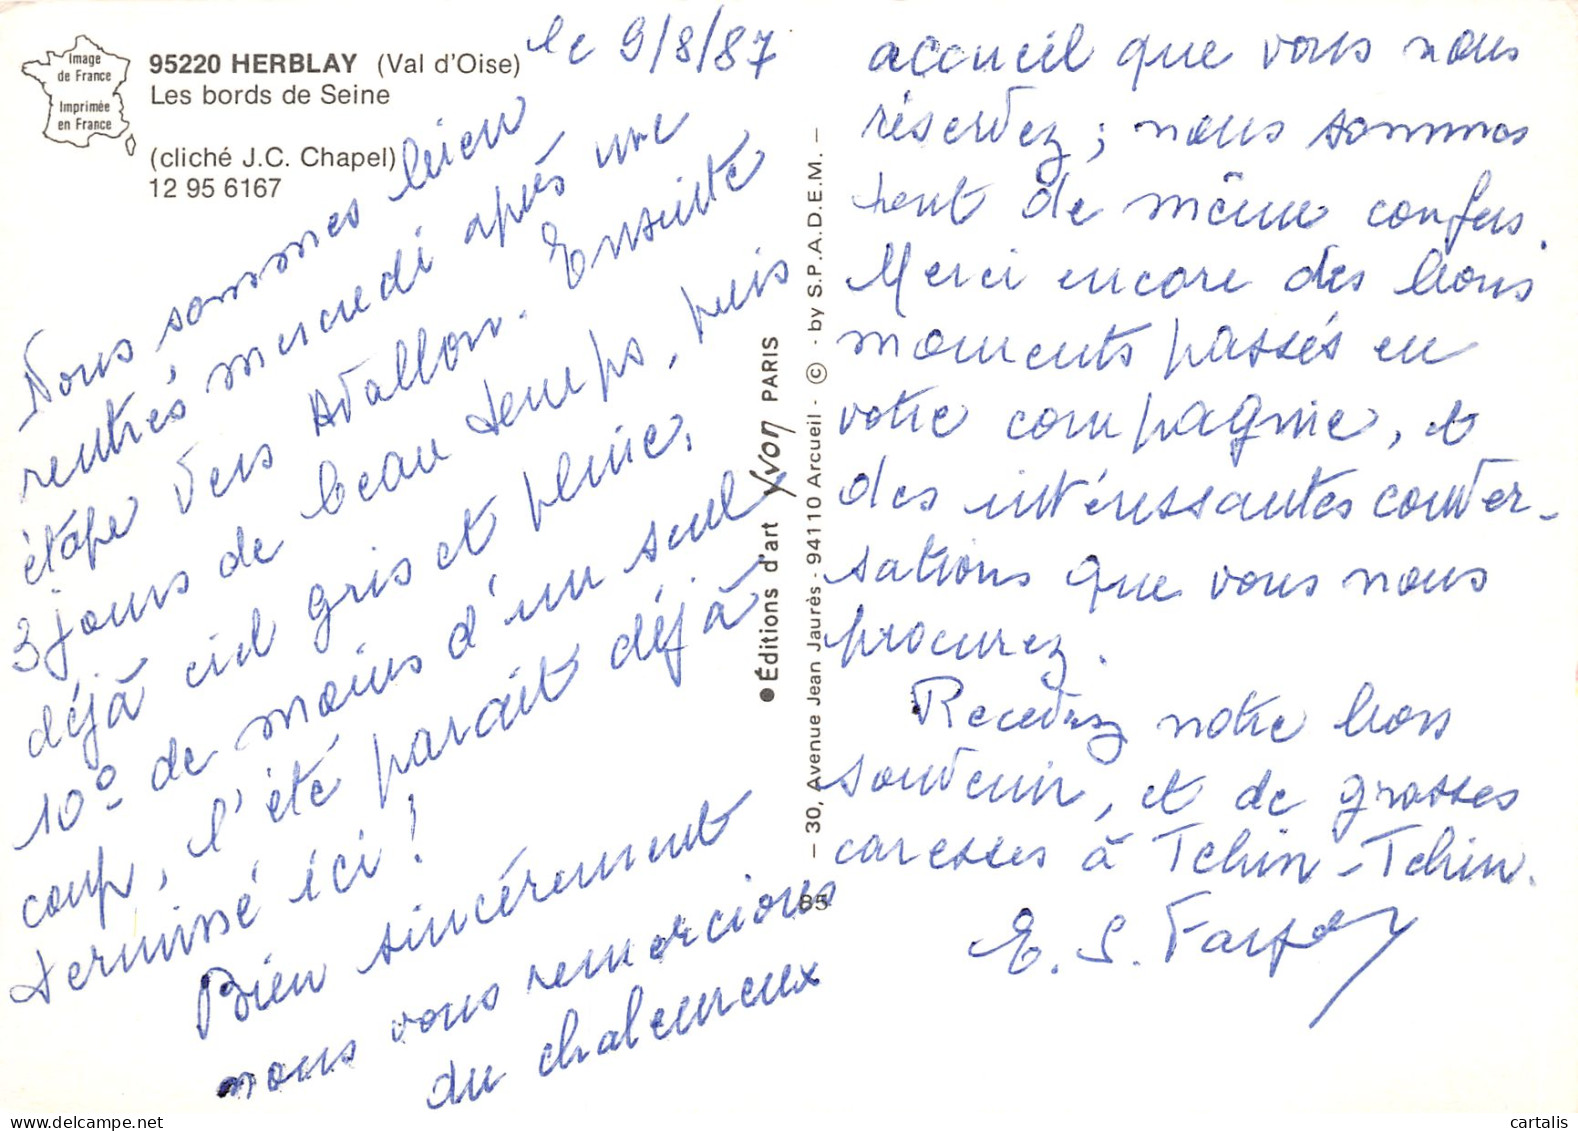 Image
de France
Imprimée
en France
95220 HERBLAY (Val d'Oise)
Les bords de Seine
(cliché J.C. Chapel)
12 95 6167
le 9/8/87
Nous sommes bien
rentrés mercredi après une
étape vers Avallon. Ensuite
3 jours de beau temps, puis
déjà ciel gris et pluie.
10° de moins d'un seul
coup, l'été parait déjà
terminé ici !
Bien sincèrement
nous vous remercions
du chaleureux
accueil que vous nous
réservez ; nous sommes
tout de même confus.
Merci encore des bons
moments passés en
votre compagnie, et
des intéressantes conver-
sations que vous nous
procurez.
Recevez notre bon
souvenir, et de grosses
caresses à Tchin-Tchin.
E. S.
● Éditions d'art Yvon PARIS
– 30, Avenue Jean Jaurès - 94110 Arcueil - © - by S.P.A.D.E.M. –
85
cartalis